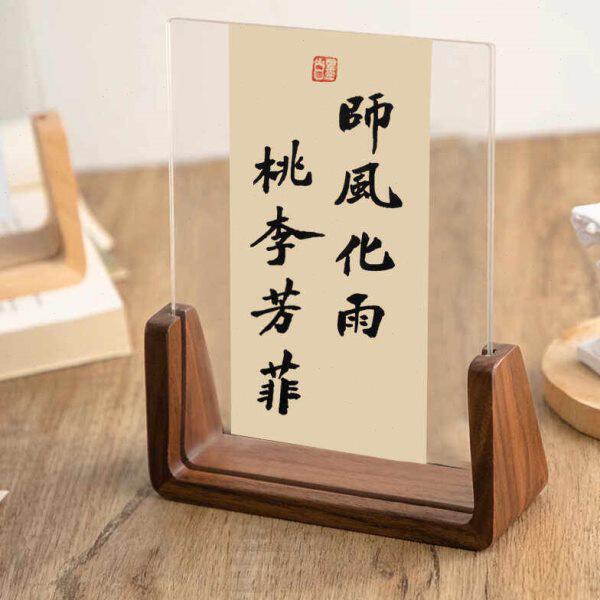 師風化雨
桃李芳菲